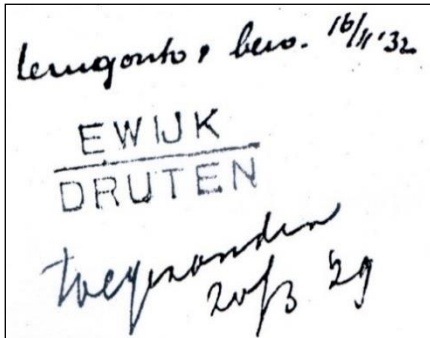 terugontv. bew. 16/11 '32
EWIJK
DRUTEN
toegezonden
20/3 '29